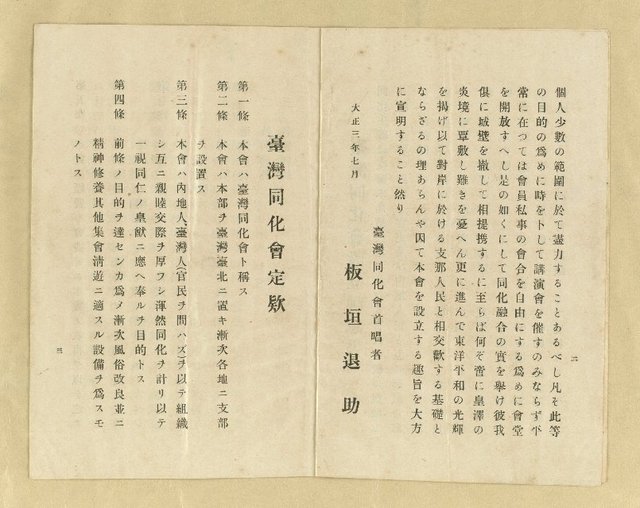 個人少數の範圍に於て盡力することあるべし凡そ此等
の目的の爲めに時を卜して講演會を催すのみならず平
常に在つては會員私事の會合を自由にする爲めに會堂
を開放すべし是の如くにして同化融合の實を擧け彼我
俱に城壁を撤して相提携するに至らば何ぞ啻に皇澤の
炎境に覃敷し難きを憂へん更に進んで東洋平和の光輝
を揚け以て對岸に於ける支那人民と相交歡する基礎と
ならざるの理あらんや因て本會を設立する趣旨を大方
に宣明すること然り
大正三年七月
臺灣同化會首唱者
板垣退助
二
臺灣同化會定欵
第一條 本會ハ臺灣同化會ト稱ス
第二條 本會ハ本部ヲ臺灣臺北ニ置キ漸次各地ニ支部
ヲ設置ス
第三條 本會ハ內地人、臺灣人官民ヲ問ハズ之ヲ以テ組織
シ互ニ親睦交際ヲ厚フシ渾然同化ヲ計リ以テ
一視同仁ノ皇猷ニ應ヘ奉ルヲ目的トス
第四條 前條ノ目的ヲ達センカ爲メ漸次風俗改良並ニ
精神修養其他集會淸遊ニ適スル設備ヲ爲スモ
ノトス
三